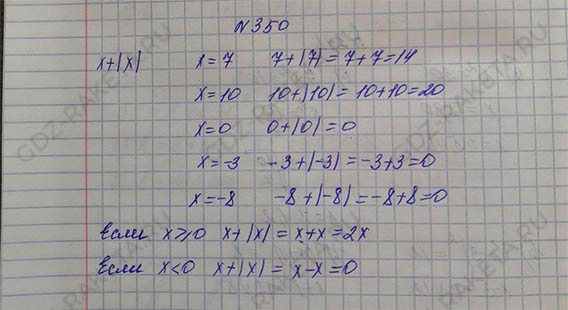 N350
x+|x| x=7 7+|7|=7+7=14
x=10 10+|10|=10+10=20
x=0 0+|0|=0
x=-3 -3+|-3|=-3+3=0
x=-8 -8+|-8|=-8+8=0
Если x⩾0 x+|x|=x+x=2x
Если x<0 x+|x|=x-x=0
GDZ-RAKETA.RU